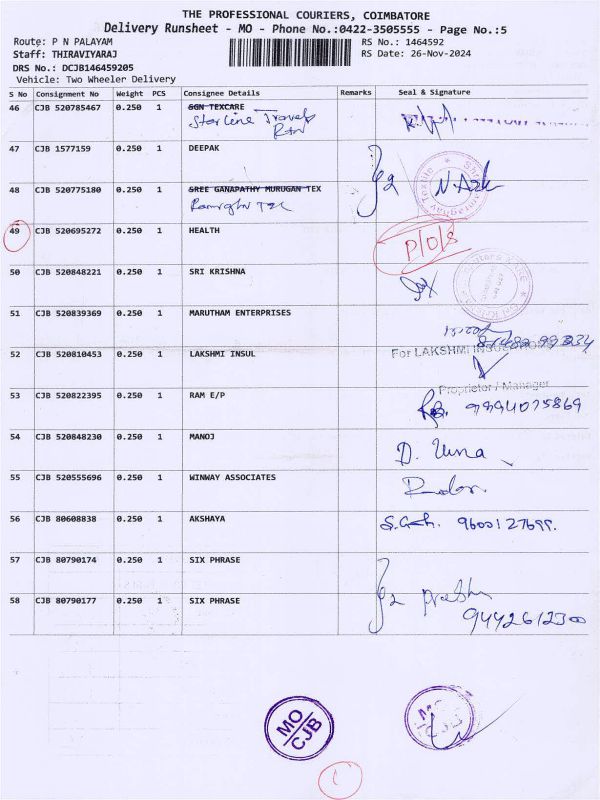 THE PROFESSIONAL COURIERS, COIMBATORE
Delivery Runsheet - MO - Phone No.:0422-3505555 - Page No.:5
Route: P N PALAYAM
RS No.: 1464592
Staff: THIRAVIYARAJ
RS Date: 26-Nov-2024
DRS No.: DCJB146459205
Vehicle: Two Wheeler Delivery
S No Consignment No Weight PCS Consignee Details Remarks Seal & Signature
46 CJB 520785467 0.250 1 SGN TEXCARE
Starline Travels
47 CJB 1577159 0.250 1 DEEPAK
48 CJB 520775180 0.250 1 SREE GANAPATHY MURUGAN TEX
49 CJB 520695272 0.250 1 HEALTH
P/O/S
50 CJB 520848221 0.250 1 SRI KRISHNA
51 CJB 520839369 0.250 1 MARUTHAM ENTERPRISES
52 CJB 520810453 0.250 1 LAKSHMI INSUL
For LAKSHMI
Proprietor / Manager
53 CJB 520822395 0.250 1 RAM E/P
9894075869
54 CJB 520848230 0.250 1 MANOJ
55 CJB 520555696 0.250 1 WINWAY ASSOCIATES
56 CJB 80608838 0.250 1 AKSHAYA
57 CJB 80790174 0.250 1 SIX PHRASE
58 CJB 80790177 0.250 1 SIX PHRASE
9442612300
MO
CJB
MO
CJB